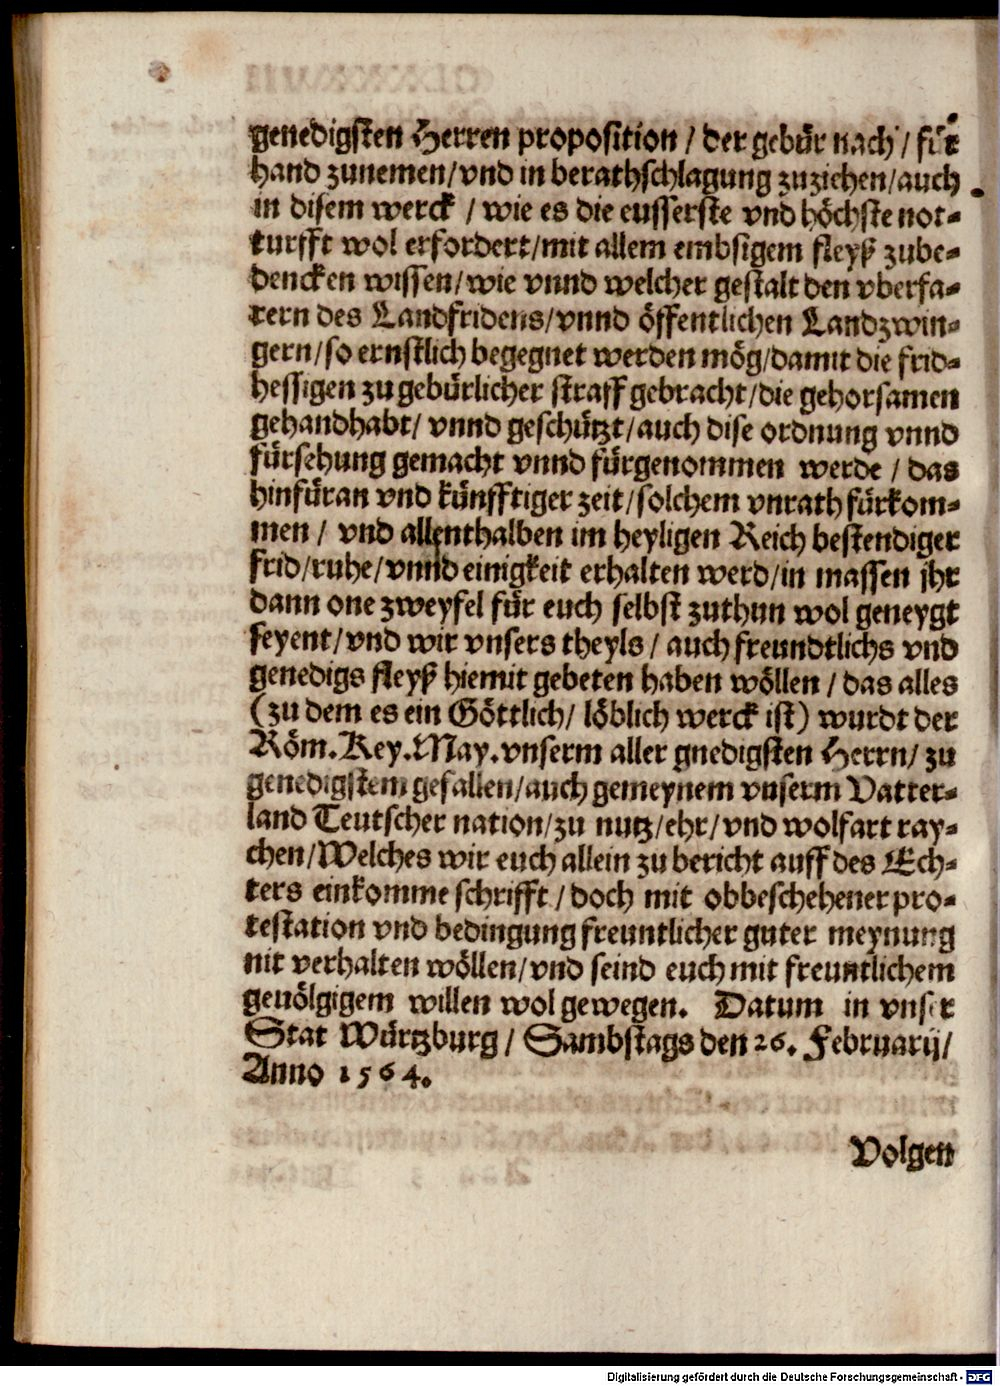 genedigsten Herren proposition / der gebür nach / für
hand zunemen/vnd in berathschlagung zuziehen/auch
in disem werck / wie es die eusserste vnd höchste not-
turfft wol erfordert/mit allem embsigem fleyß zube-
dencken wissen/wie vnnd welcher gestalt den vberfa-
rern des Landfridens/vnnd öffentlichen Landzwin-
gern/so ernstlich begegnet werden mög/damit die frid-
hessigen zu gebürlicher straff gebracht/die gehorsamen
gehandhabt/ vnnd geschützt/auch dise ordnung vnnd
fürsehung gemacht vnnd fürgenommen werde / das
hinfüran vnd künfftiger zeit/solchem vnrath fürkom-
men / vnd allenthalben im heyligen Reich bestendiger
frid/ruhe/vnnd einigkeit erhalten werd/in massen jhr
dann one zweyfel für euch selbst zuthun wol geneygt
seyent/vnd wir vnsers theyls / auch freundtlichs vnd
genedigs fleyß hiemit gebeten haben wöllen / das alles
(zu dem es ein Göttlich/ löblich werck ist) wurdt der
Röm.Key.May.vnserm aller gnedigsten Herrn/ zu
genedigstem gefallen/auch gemeynem vnserm Vatter-
land Teutscher nation/zu nutz/ehr/vnd wolfart ray-
chen/Welches wir euch allein zu bericht auff des Ech-
ters einkomme schrifft / doch mit obbeschehener pro-
testation vnd bedingung freuntlicher guter meynung
nit verhalten wöllen/vnd seind euch mit freuntlichem
genölgigem willen wol gewegen. Datum in vnser
Stat Würtzburg / Sambstags den 26. Februarij/
Anno 1564.
Volgen
Digitalisierung gefördert durch die Deutsche Forschungsgemeinschaft - DFG